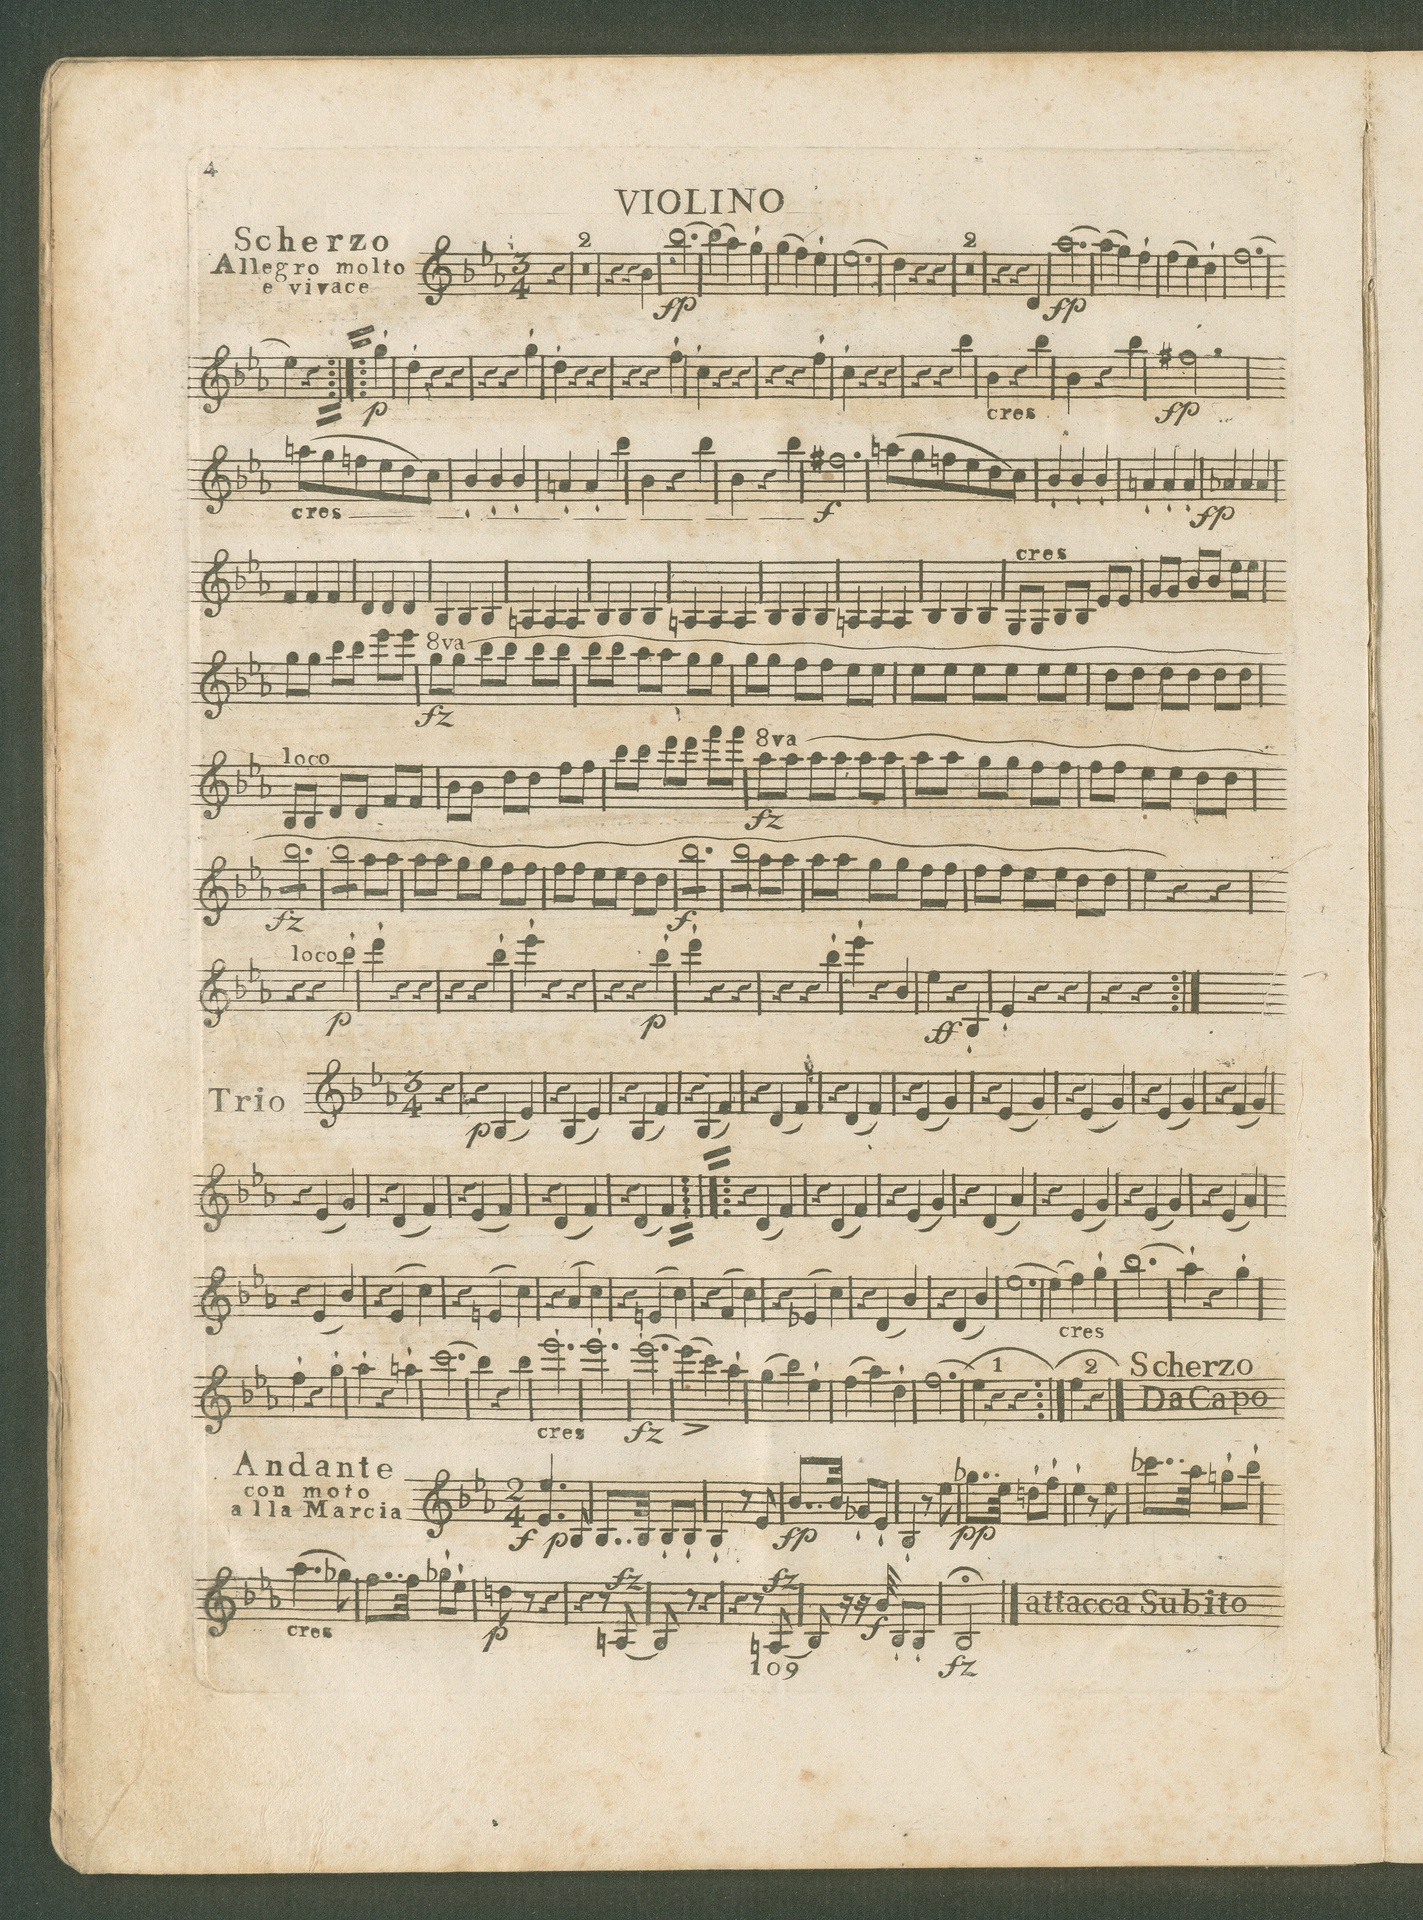 4
VIOLINO
Scherzo
Allegro molto
e vivace
3
4
2
2
fp
fp
p
cres
fp
cres
f
fp
cres
8va
fz
loco
8va
fz
fz
f
loco
p
p
ff
Trio
3
4
p
cres
1
2
Scherzo
Da Capo
cres
fz
Andante
con moto
alla Marcia
2
4
f
p
fp
pp
fz
fz
attacca Subito
cres
p
f
109
fz